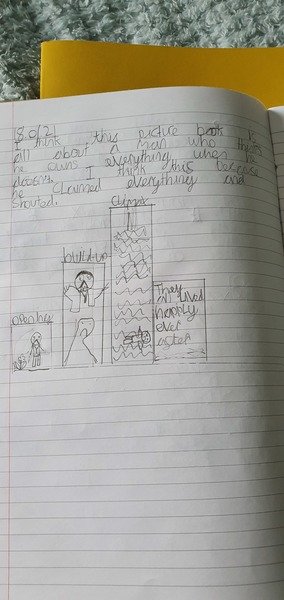 18.01.21
I think this picture book is
all about a man who thinks
he owns everything when he
doesnt. I think this because
he claimed everything and
shouted.
Climax
build-up
opening
They
lived
happly
ever
after